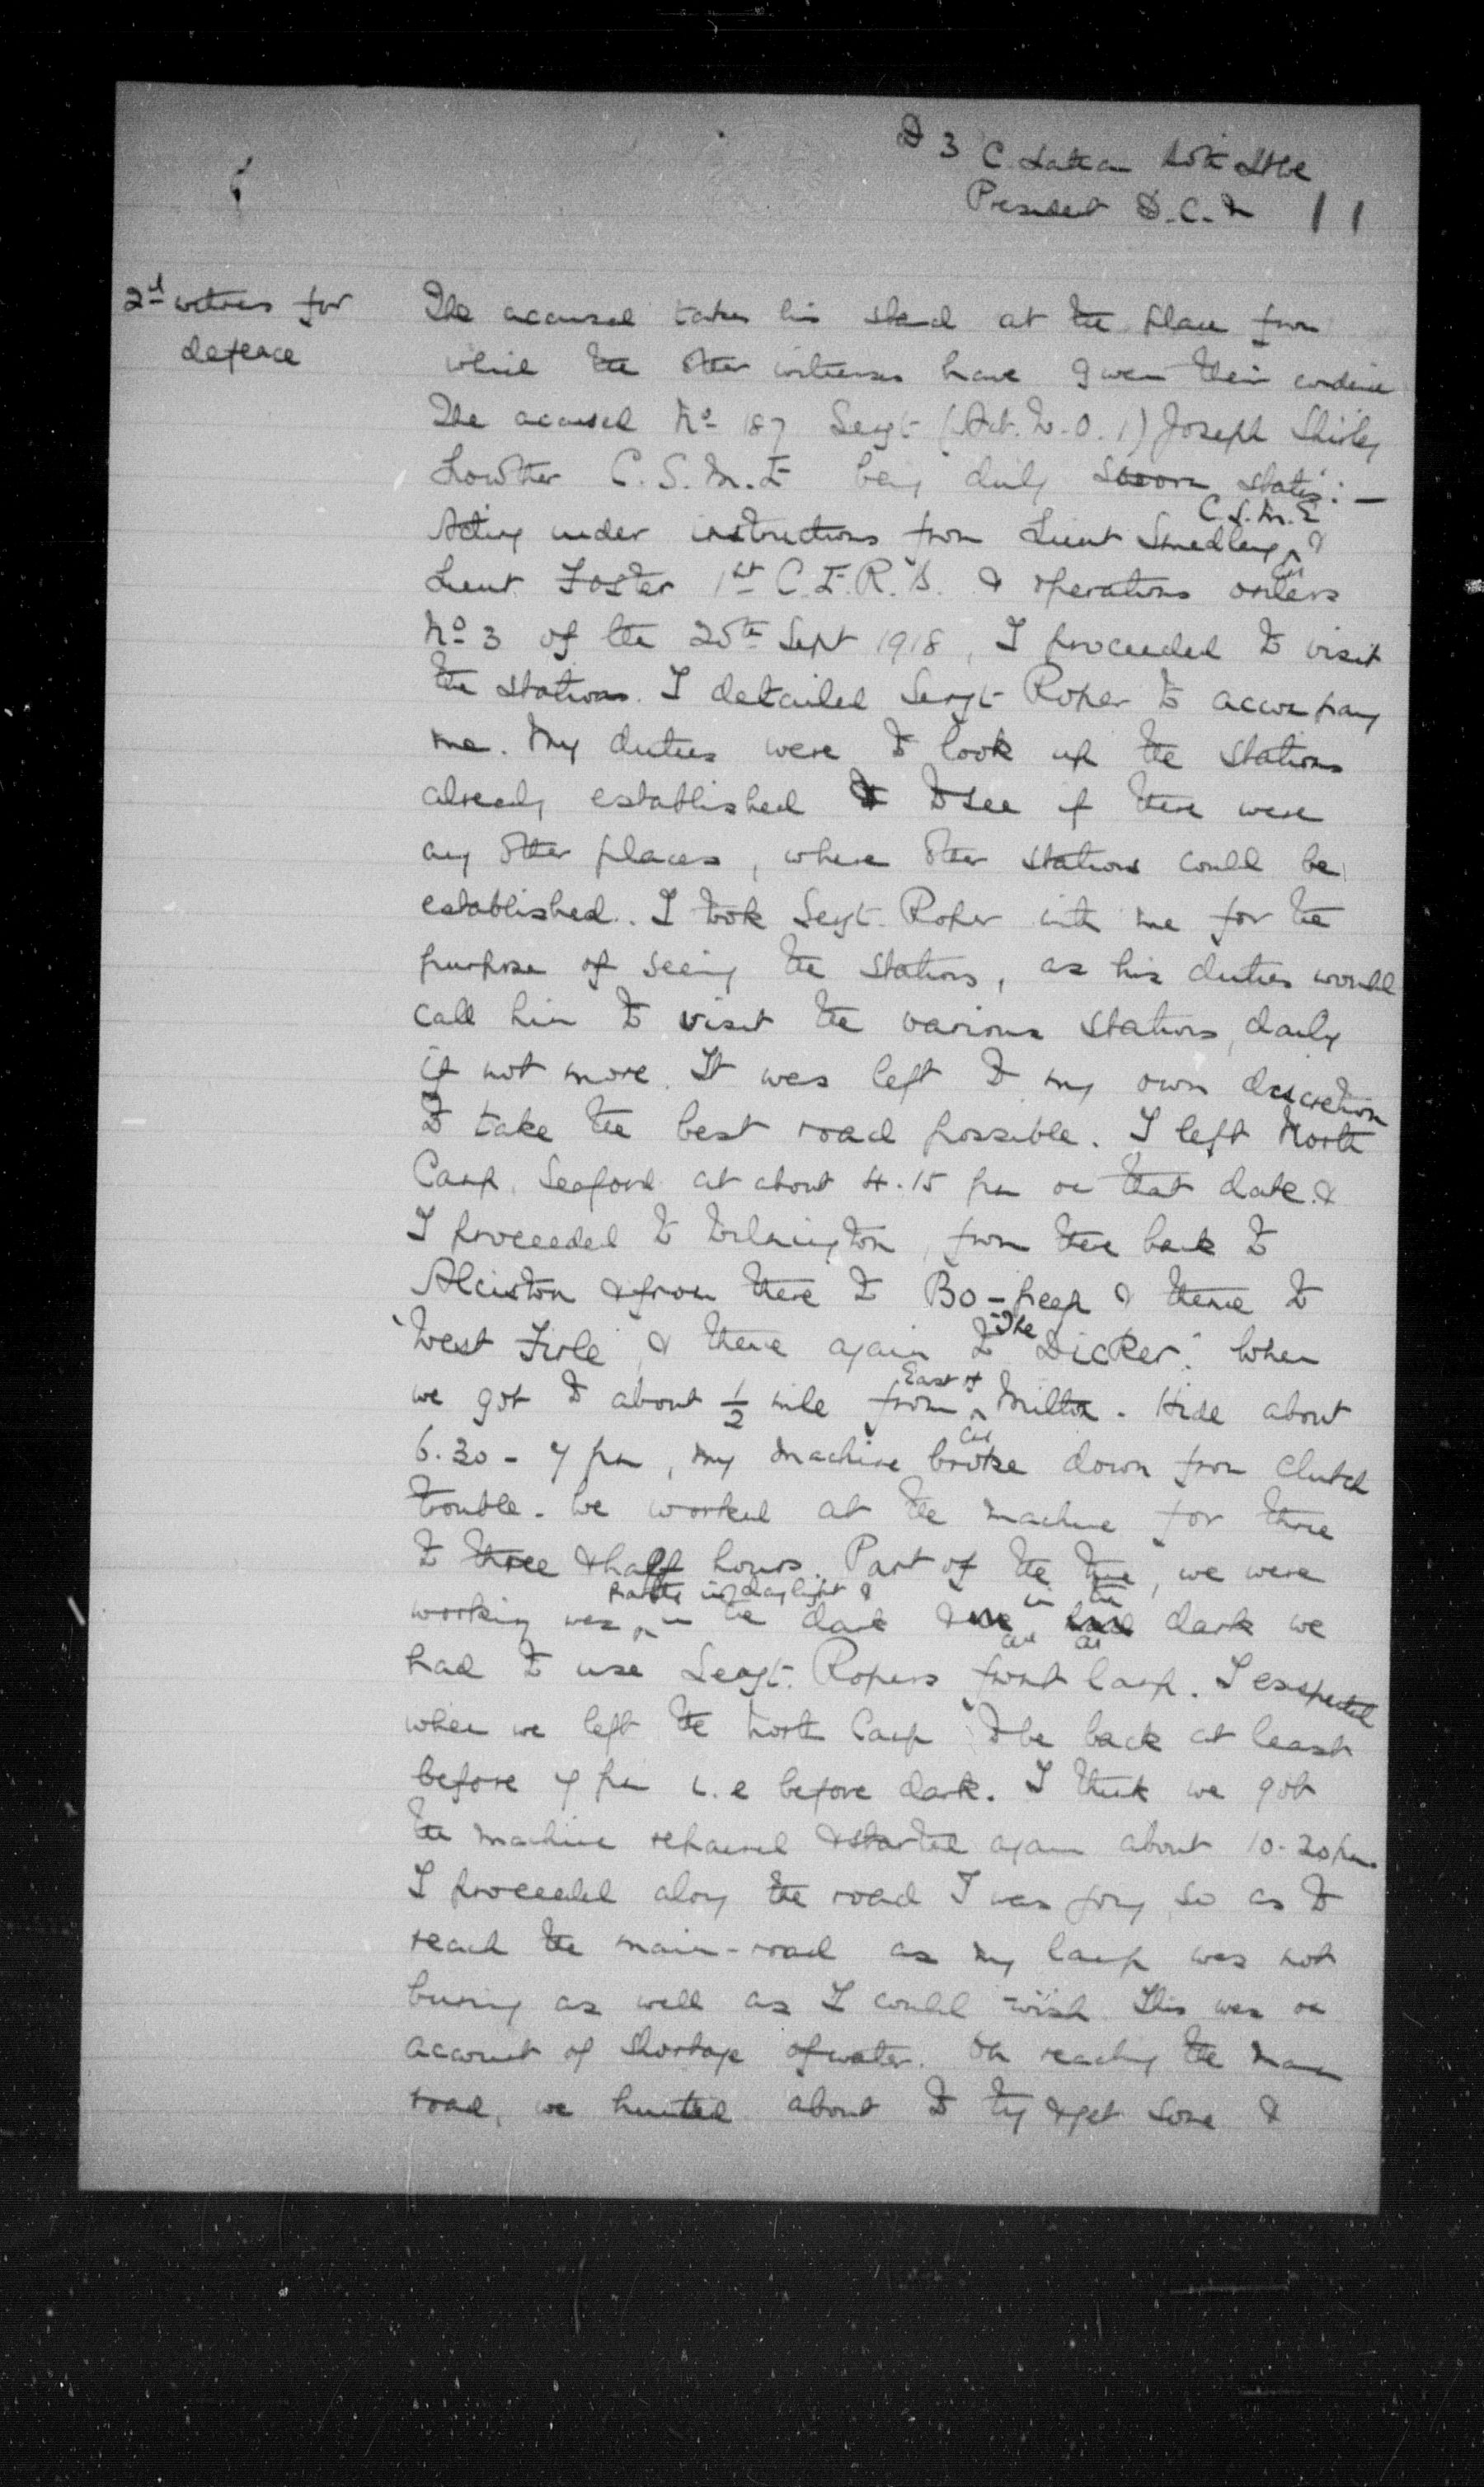 D 3 C.
President D.C.M 11
2nd witness for
defence
The accused takes his stand at the place from
which the other witnesses have given their evidence
The accused No 187 Sergt (Act. W.O. 1) Joseph Shirley
Lowther C.S.M.E being duly sworn states:—
C.S.M.E
Acting under instructions from Lieut Smedley &
Lieut Foster 1st C.E.R.B. & operations orders
No 3 of the 25th Sept 1918, I proceeded to visit
the stations. I detailed Sergt Roper to accompany
me. My duties were to look up the stations
already established & to see if there were
any other places, where other stations could be
established. I took Sergt. Roper with me for the
purpose of seeing the stations, as his duties would
call him to visit the various stations, daily
if not more. It was left to my own discretion
to take the best road possible. I left North
Camp, Seaford at about 4.15 pm on that date &
I proceeded to Wilmington, from there back to
Alciston & from there to Bo-peep & thence to
West Firle, & thence again to The Dicker. When
we got to about 1/2 mile from East of Milton-Hide about
6.30 - 7 pm, my machine broke down from clutch
trouble. We worked at the machine for three
to three & half hours. Part of the time, we were
working was partly in daylight & in the dark & in the dark we
had to use Sergt. Ropers front lamp. I expected
when we left the North Camp to be back at least
before 7 pm i.e before dark. I think we got
the machine repaired & started again about 10.20 pm.
I proceeded along the road I was going so as to
reach the main-road as my lamp was not
burning as well as I could wish. This was on
account of shortage of water. On reaching the main
road, we hunted about to try & get some &